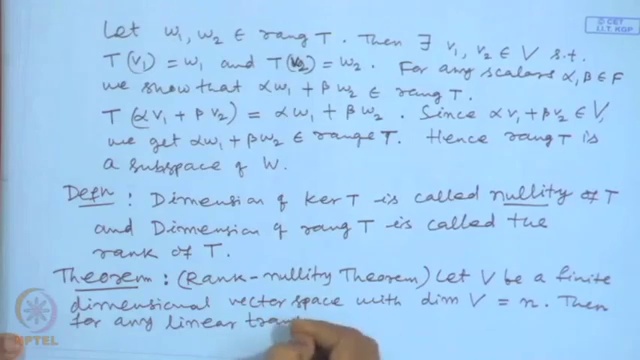 © CET
I.I.T. KGP
Let w₁, w₂ ∈ rang T. Then ∃ v₁, v₂ ∈ V s.t.
T(v₁) = w₁ and T(v₂) = w₂. For any scalars α, β ∈ F
we show that αw₁ + βw₂ ∈ rang T.
T(αv₁ + βv₂) = αw₁ + βw₂. Since αv₁ + βv₂ ∈ V,
we get αw₁ + βw₂ ∈ range T. Hence rang T is
a subspace of W.
Defn : Dimension of ker T is called nullity of T
and Dimension of rang T is called the
rank of T.
Theorem : (Rank-nullity Theorem) Let V be a finite
dimensional vector space with dim V = n. Then
for any linear tran
NPTEL